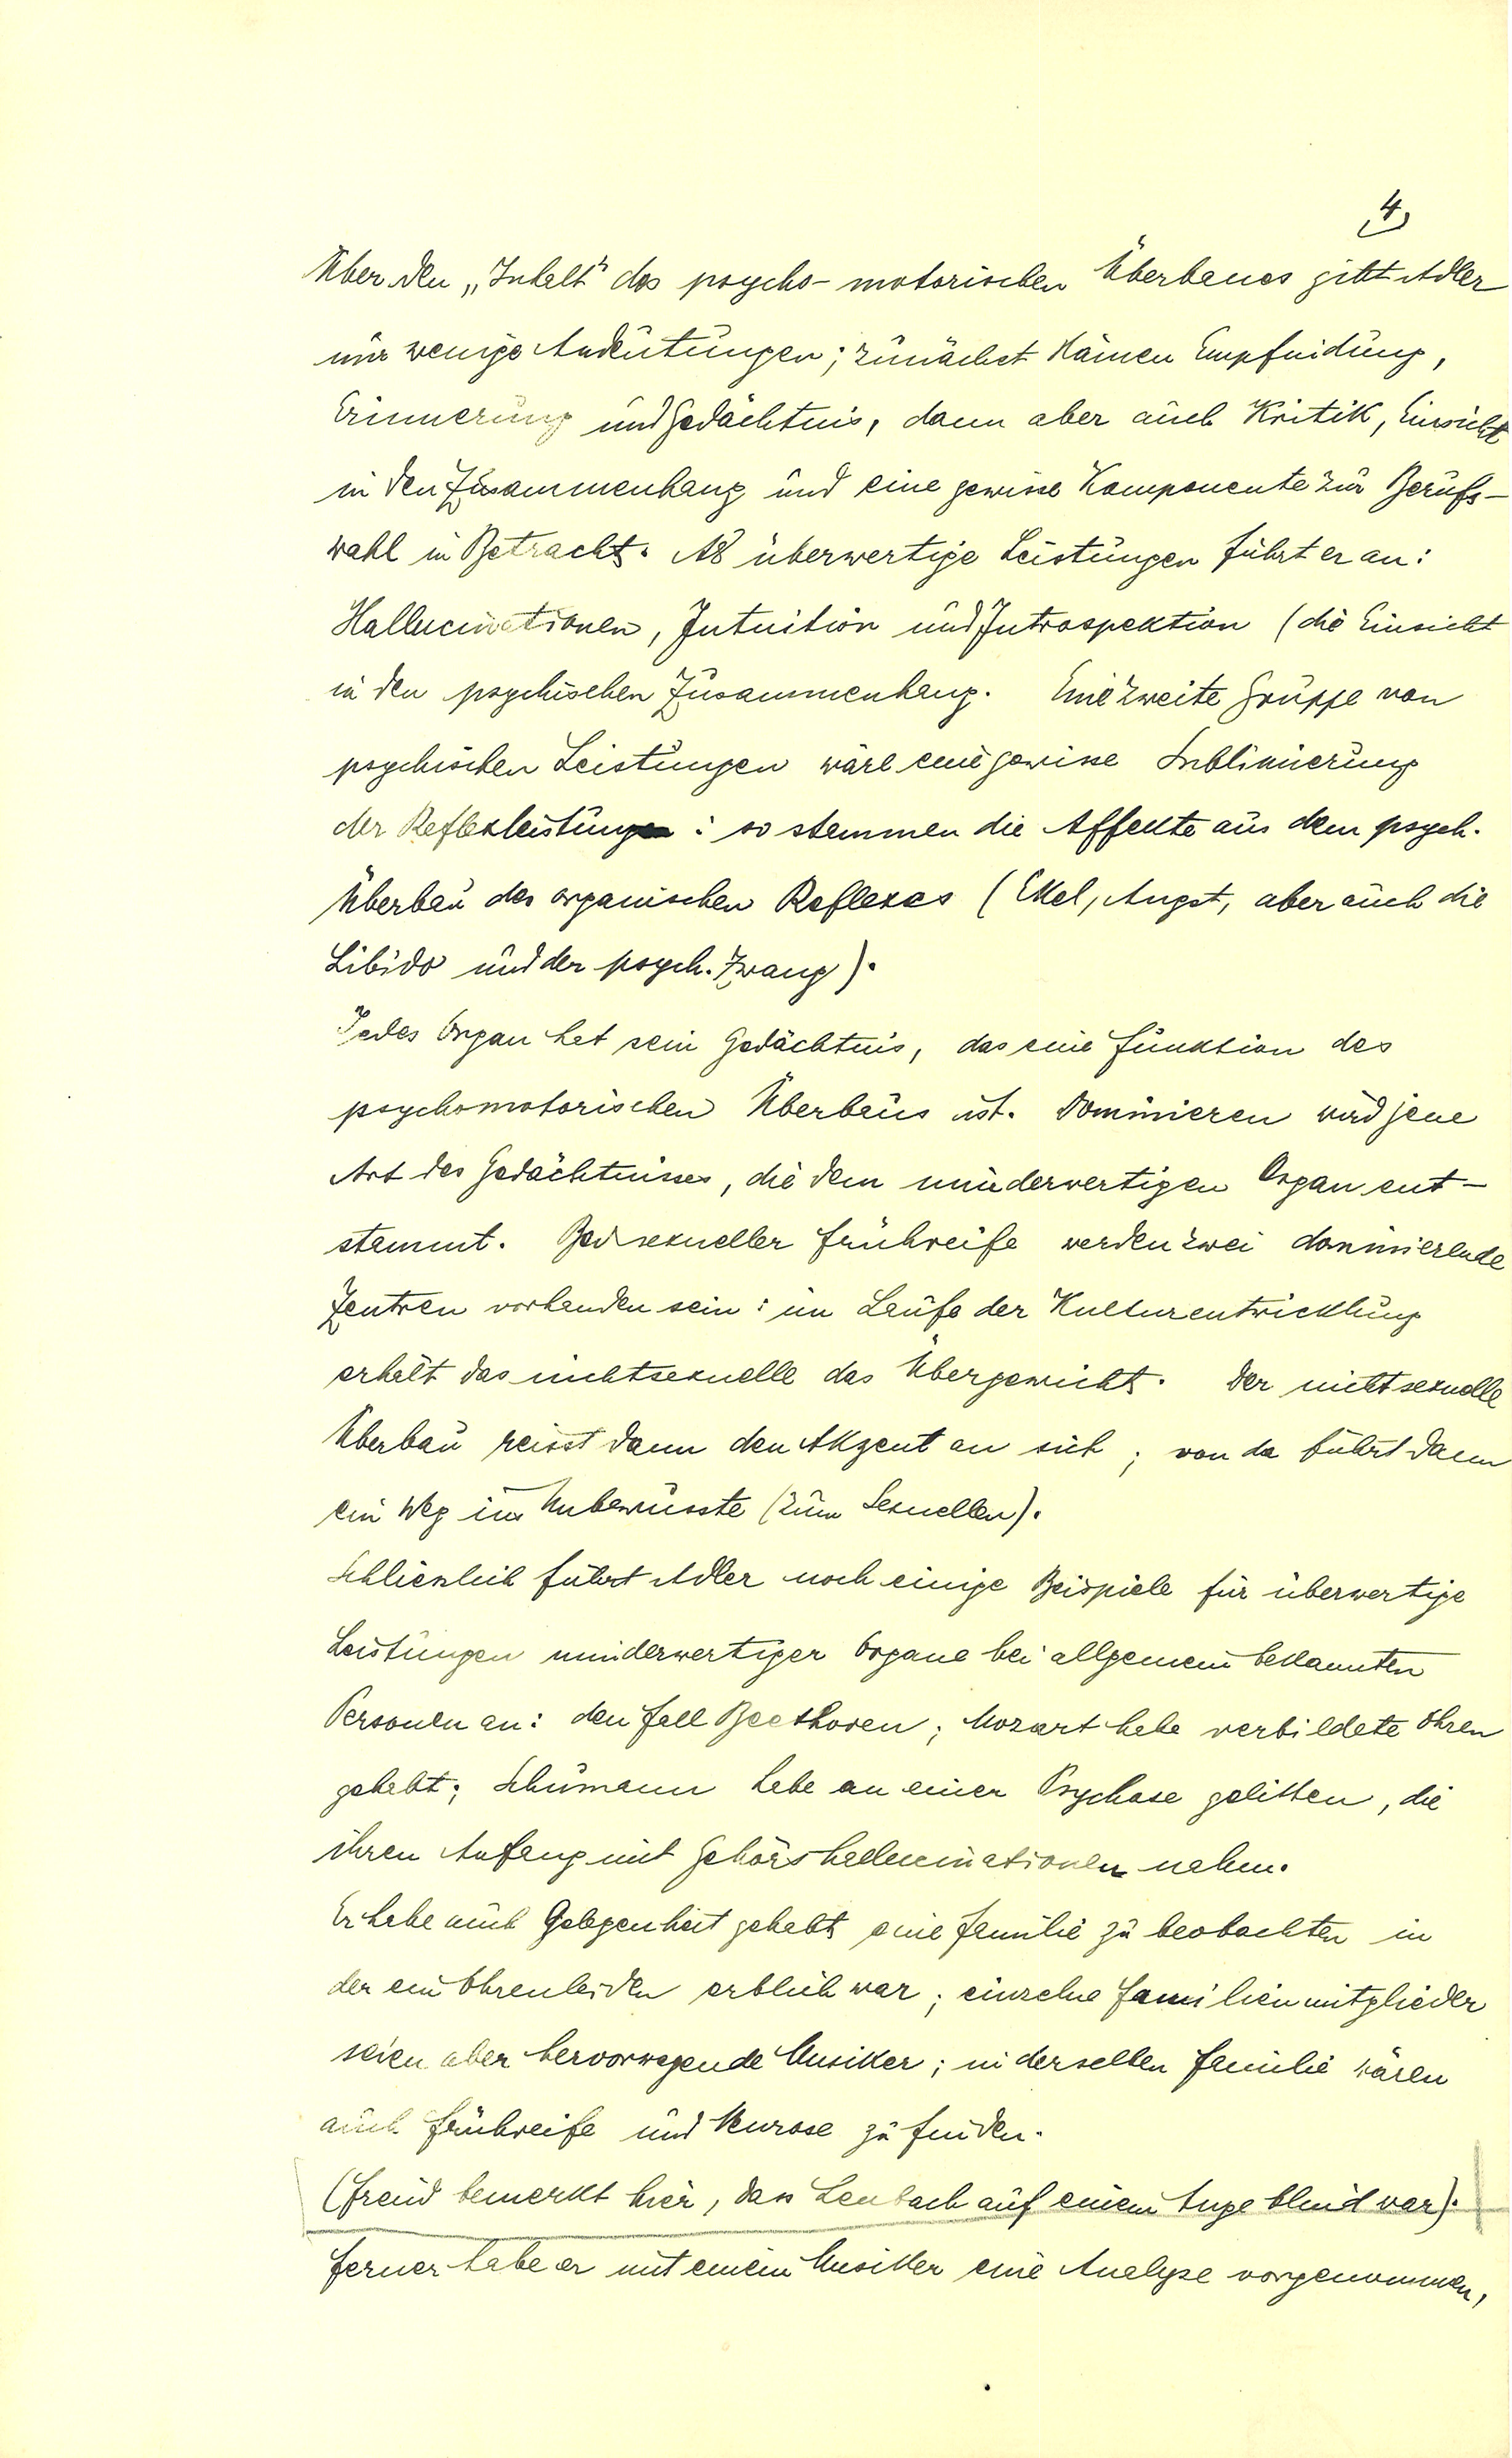 4)
Über den „Inhalt" des psycho-motorischen Überbaues gibt Adler
nur wenige Andeutungen; zunächst kämen Empfindung,
Erinnerung und Gedächtnis, dann aber auch Kritik, Einsicht
in den Zusammenhang und eine gewisse Komponente zur Berufs-
wahl in Betracht. Als überwertige Leistungen führt er an:
Hallucinationen, Intuition und Introspektion (die Einsicht
in den psychischen Zusammenhang. Eine zweite Gruppe von
psychischen Leistungen wäre eine gewisse Sublimierung
der Reflexleistung: so stammen die Affekte aus dem psych.
Überbau des organischen Reflexes (Ekel, Angst, aber auch die
Libido und der psych. Zwang).
Jedes Organ hat sein Gedächtnis, das eine Funktion des
psychomotorischen Überbaus ist. Dominieren wird jene
Art des Gedächtnisses, die dem minderwertigen Organ ent-
stammt. Bei sexueller Frühreife werden zwei dominierende
Zentren vorhanden sein: im Laufe der Kulturentwicklung
erhält das nichtsexuelle das Übergewicht. Der nichtsexuelle
Überbau reisst dann den Akzent an sich; von da führt dann
ein Weg ins Unbewusste (zum Sexuellen).
Schliesslich führt Adler noch einige Beispiele für überwertige
Leistungen minderwertiger Organe bei allgemein bekannten
Personen an: den Fall Beethoven; Mozart habe verbildete Ohren
gehabt; Schumann habe an einer Psychose gelitten, die
ihren Anfang mit Gehörshallucinationen nahm.
Er habe auch Gelegenheit gehabt eine Familie zu beobachten in
der ein Ohrenleiden erblich war; einzelne Familienmitglieder
seien aber hervorragende Musiker; in derselben Familie wären
auch Frühreife und Neurose zu finden.
(Freud bemerkt hier, dass Lenbach auf einem Auge blind war).
Ferner habe er mit einem Musiker eine Analyse vorgenommen,